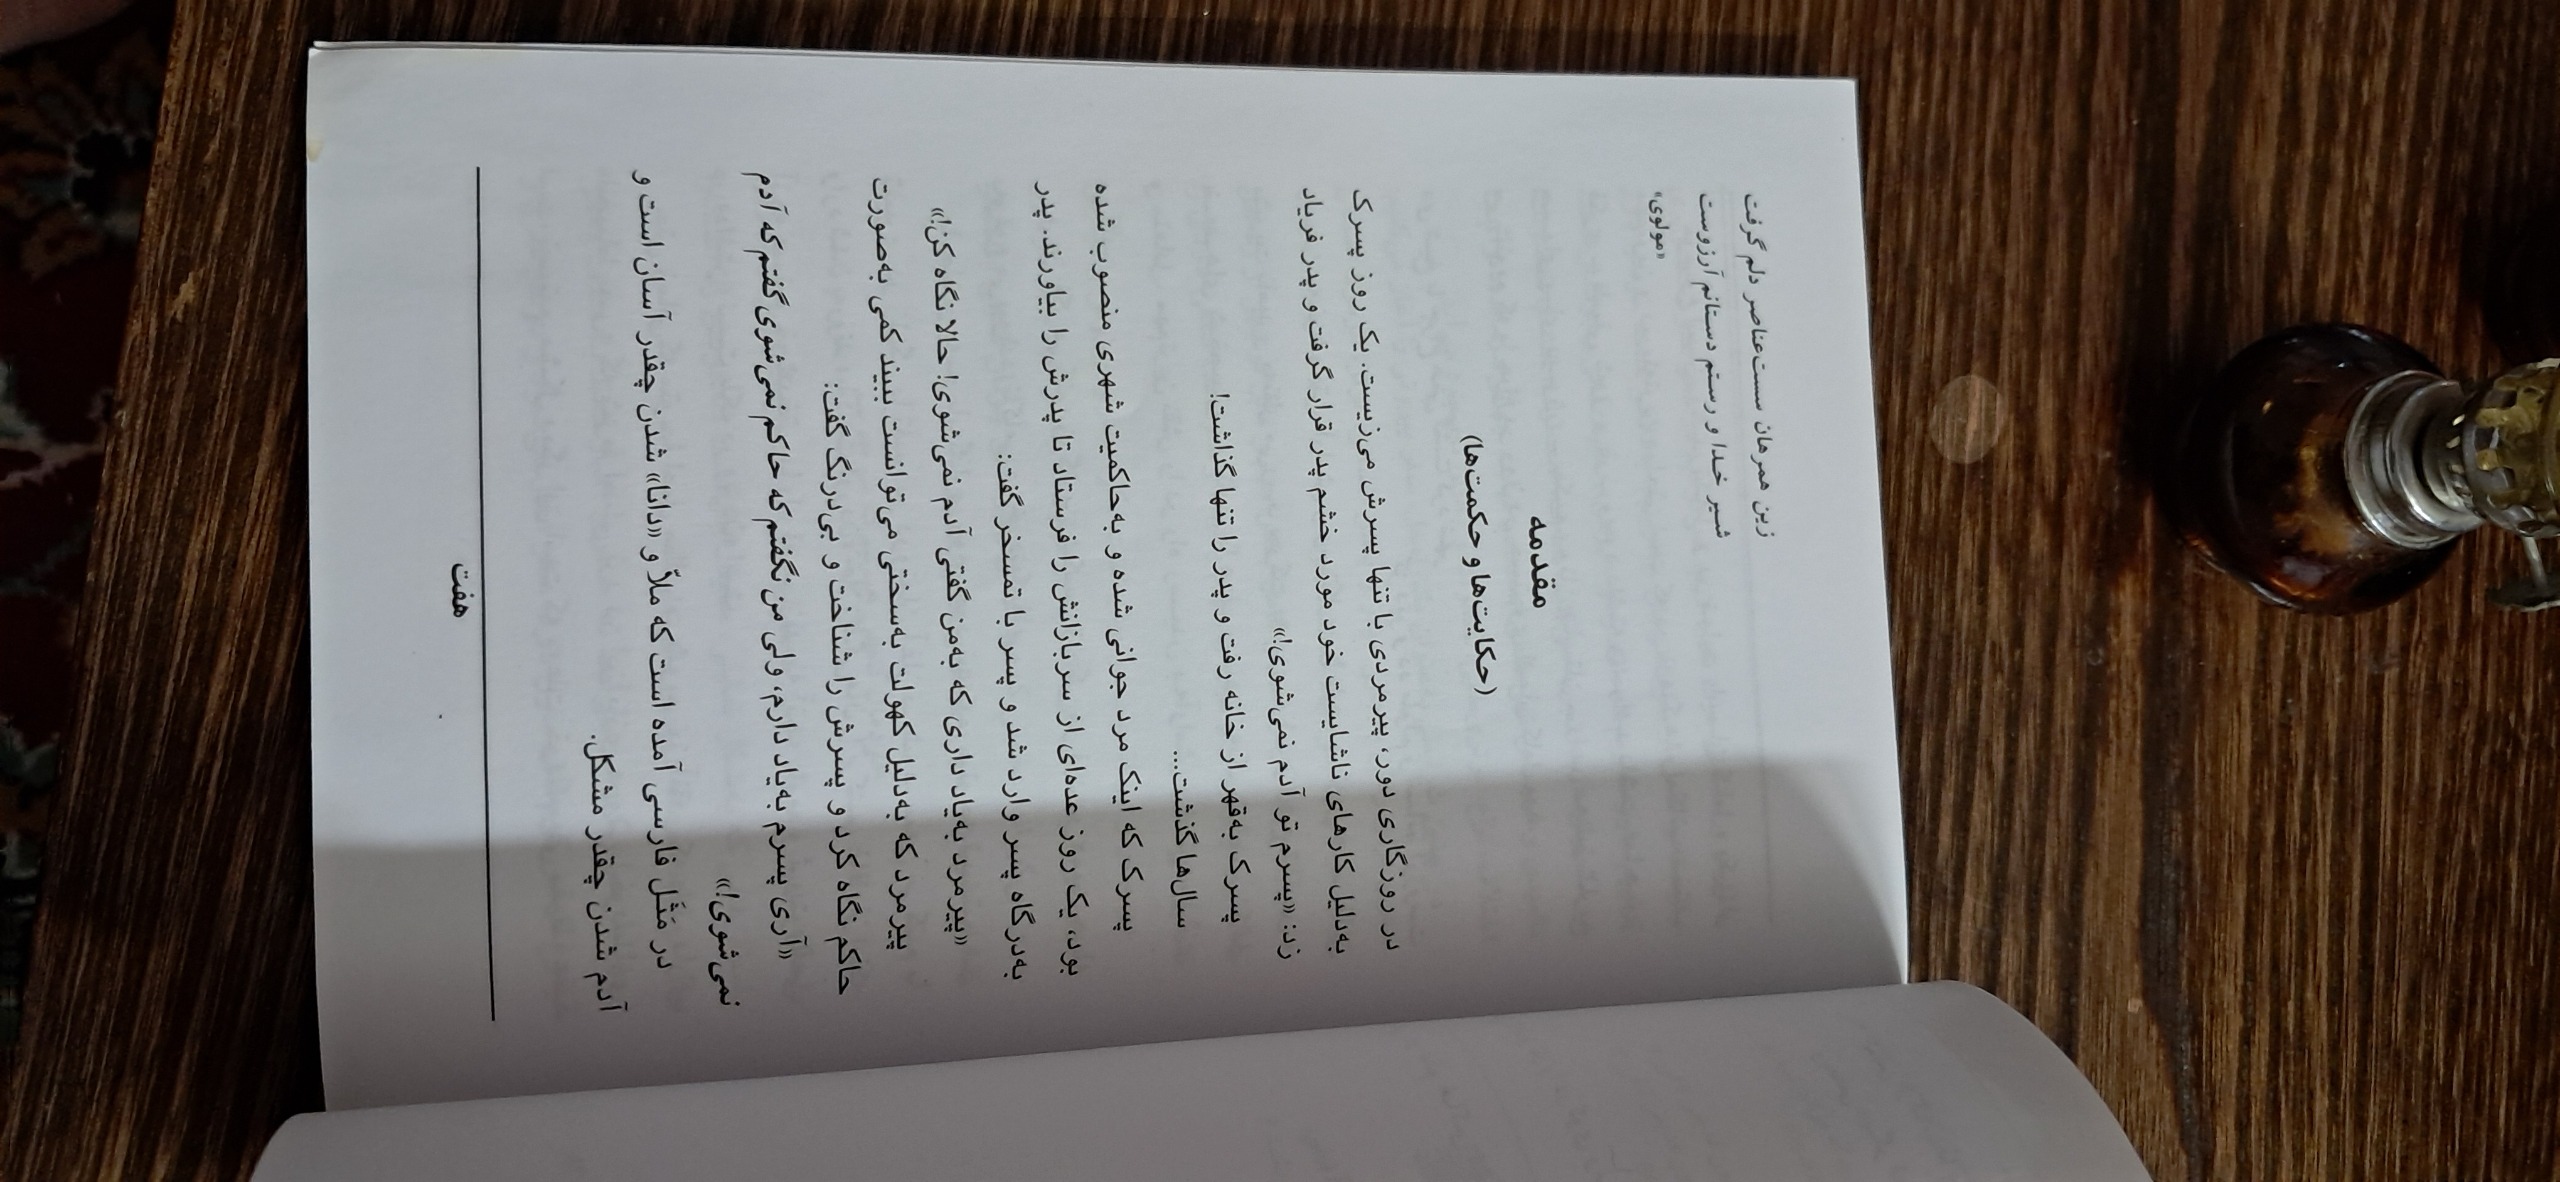 زین همرهان سست‌عناصر دلم گرفت
شیر خدا و رستم دستانم آرزوست
«مولوی»
مقدمه
(حکایت‌ها و حکمت‌ها)
در روزگاری دور، پیرمردی با تنها پسرش می‌زیست. یک روز پسرک
به‌دلیل کارهای ناشایست خود مورد خشم پدر قرار گرفت و پدر فریاد
زد: «پسرم تو آدم نمی‌شوی!»
پسرک به‌قهر از خانه رفت و پدر را تنها گذاشت!
سال‌ها گذشت...
پسرک که اینک مرد جوانی شده و به‌حاکمیت شهری منصوب شده
بود، یک روز عده‌ای از سربازانش را فرستاد تا پدرش را بیاورند. پدر
به‌درگاه پسر وارد شد و پسر با تمسخر گفت:
«پیرمرد به‌یاد داری که به‌من گفتی آدم نمی‌شوی! حالا نگاه کن!»
پیرمرد که به‌دلیل کهولت به‌سختی می‌توانست ببیند کمی به‌صورت
حاکم نگاه کرد و پسرش را شناخت و بی‌درنگ گفت:
«آری پسرم به‌یاد دارم، ولی من نگفتم که حاکم نمی‌شوی گفتم که آدم
نمی‌شوی!»
در مَثَل فارسی آمده است که ملاّ و «دانا» شدن چقدر آسان است و
آدم شدن چقدر مشکل.
هفت